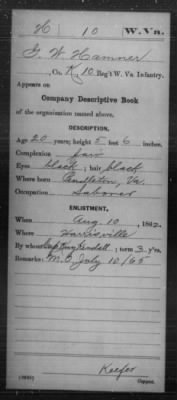 H 10 W. Va.
G. W. Hammer
, Co. K, 10 Reg't W. Va. Infantry.
Appears on
Company Descriptive Book
of the organization named above.
DESCRIPTION.
Age 20 years; height 5 feet 6 inches.
Complexion fair
Eyes black; hair black
Where born Pendleton, Va.
Occupation Laborer
ENLISTMENT.
When Aug 10, 1862.
Where Harrisville
By whom Capt Tiny Rendell; term 3 y'rs.
Remarks: M.O. July 10/65
Keefer
Copyist.